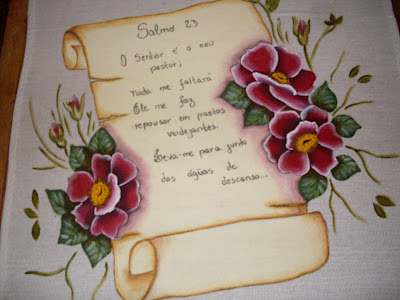 Salmo 23
O Senhor é o meu
pastor;
Nada me faltará
Ele me faz
repousar em pastos
verdejantes.
Leva-me para junto
das águas de
descanso...